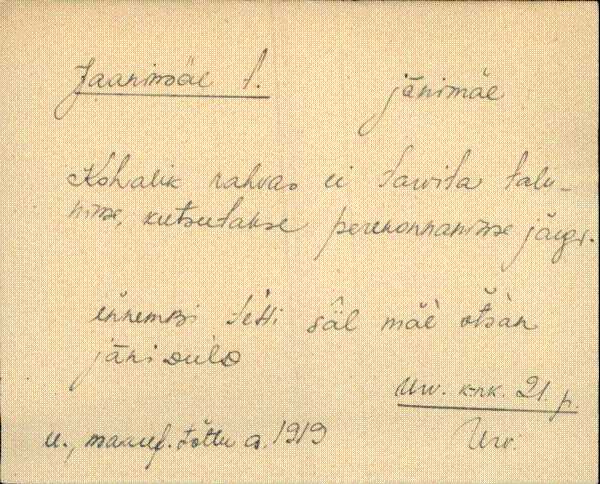 Jaanimäe t. jänimäe
Kohalik rahvas ei tarvita talu-
nime, kutsutakse perekonnanime järgi.
ennembi tetti säl mäe õtsan
jäni tulõ
Urv. k-nk. 21. p.
u., maauf. tõttu a. 1919 Urv.